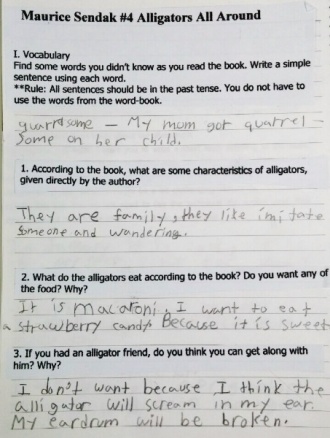 Maurice Sendak #4 Alligators All Around
I. Vocabulary
Find some words you didn't know as you read the book. Write a simple
sentence using each word.
**Rule: All sentences should be in the past tense. You do not have to
use the words from the word-book.
– My mom got quarrel-
Some on her child.
1. According to the book, what are some characteristics of alligators,
given directly by the author?
They are family, they like imitate
someone and wandering.
2. What do the alligators eat according to the book? Do you want any of
the food? Why?
It is macaroni. I want to eat
a strawberry candy Because it is sweet
3. If you had an alligator friend, do you think you can get along with
him? Why?
I don't want because I think the
alligator will scream in my ear.
My eardrum will be broken.